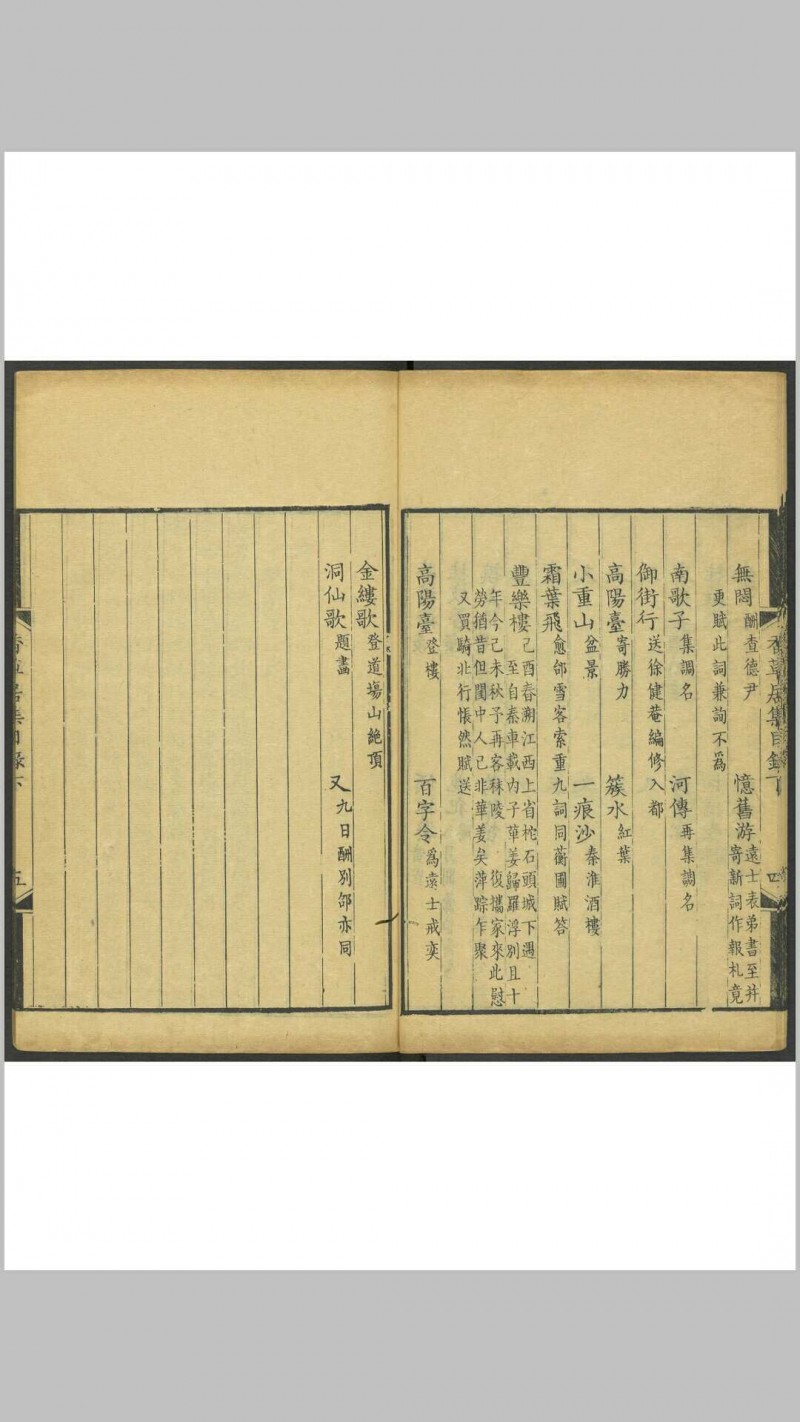 香草居集目錄下
四
無悶 酬查德尹 憶舊游 遠士表弟書至并
寄新詞作報札竟
更賦此詞兼詢不爲
南歌子 集調名 河傳 再集調名
御街行 送徐健菴編修入都
高陽臺 寄勝力 簇水 紅葉
小重山 盆景 一痕沙 秦淮酒樓
霜葉飛 愈郃雪客索重九詞同蘅圃賦答
豐樂樓 己酉春溯江西上省椗石頭城下遇
至自秦車載內子華姜歸羅浮別且十
年今己未秋予再客秣陵 復攜家來此慰
勞猶昔但閨中人已非華姜矣萍踪乍聚
又買騎北行悵然賦送
高陽臺 登樓 百字令 爲遠士戒奕
金縷歌 登道塲山絶頂
洞仙歌 題畵 又 九日酬別邵亦同
香草居集目錄下
五